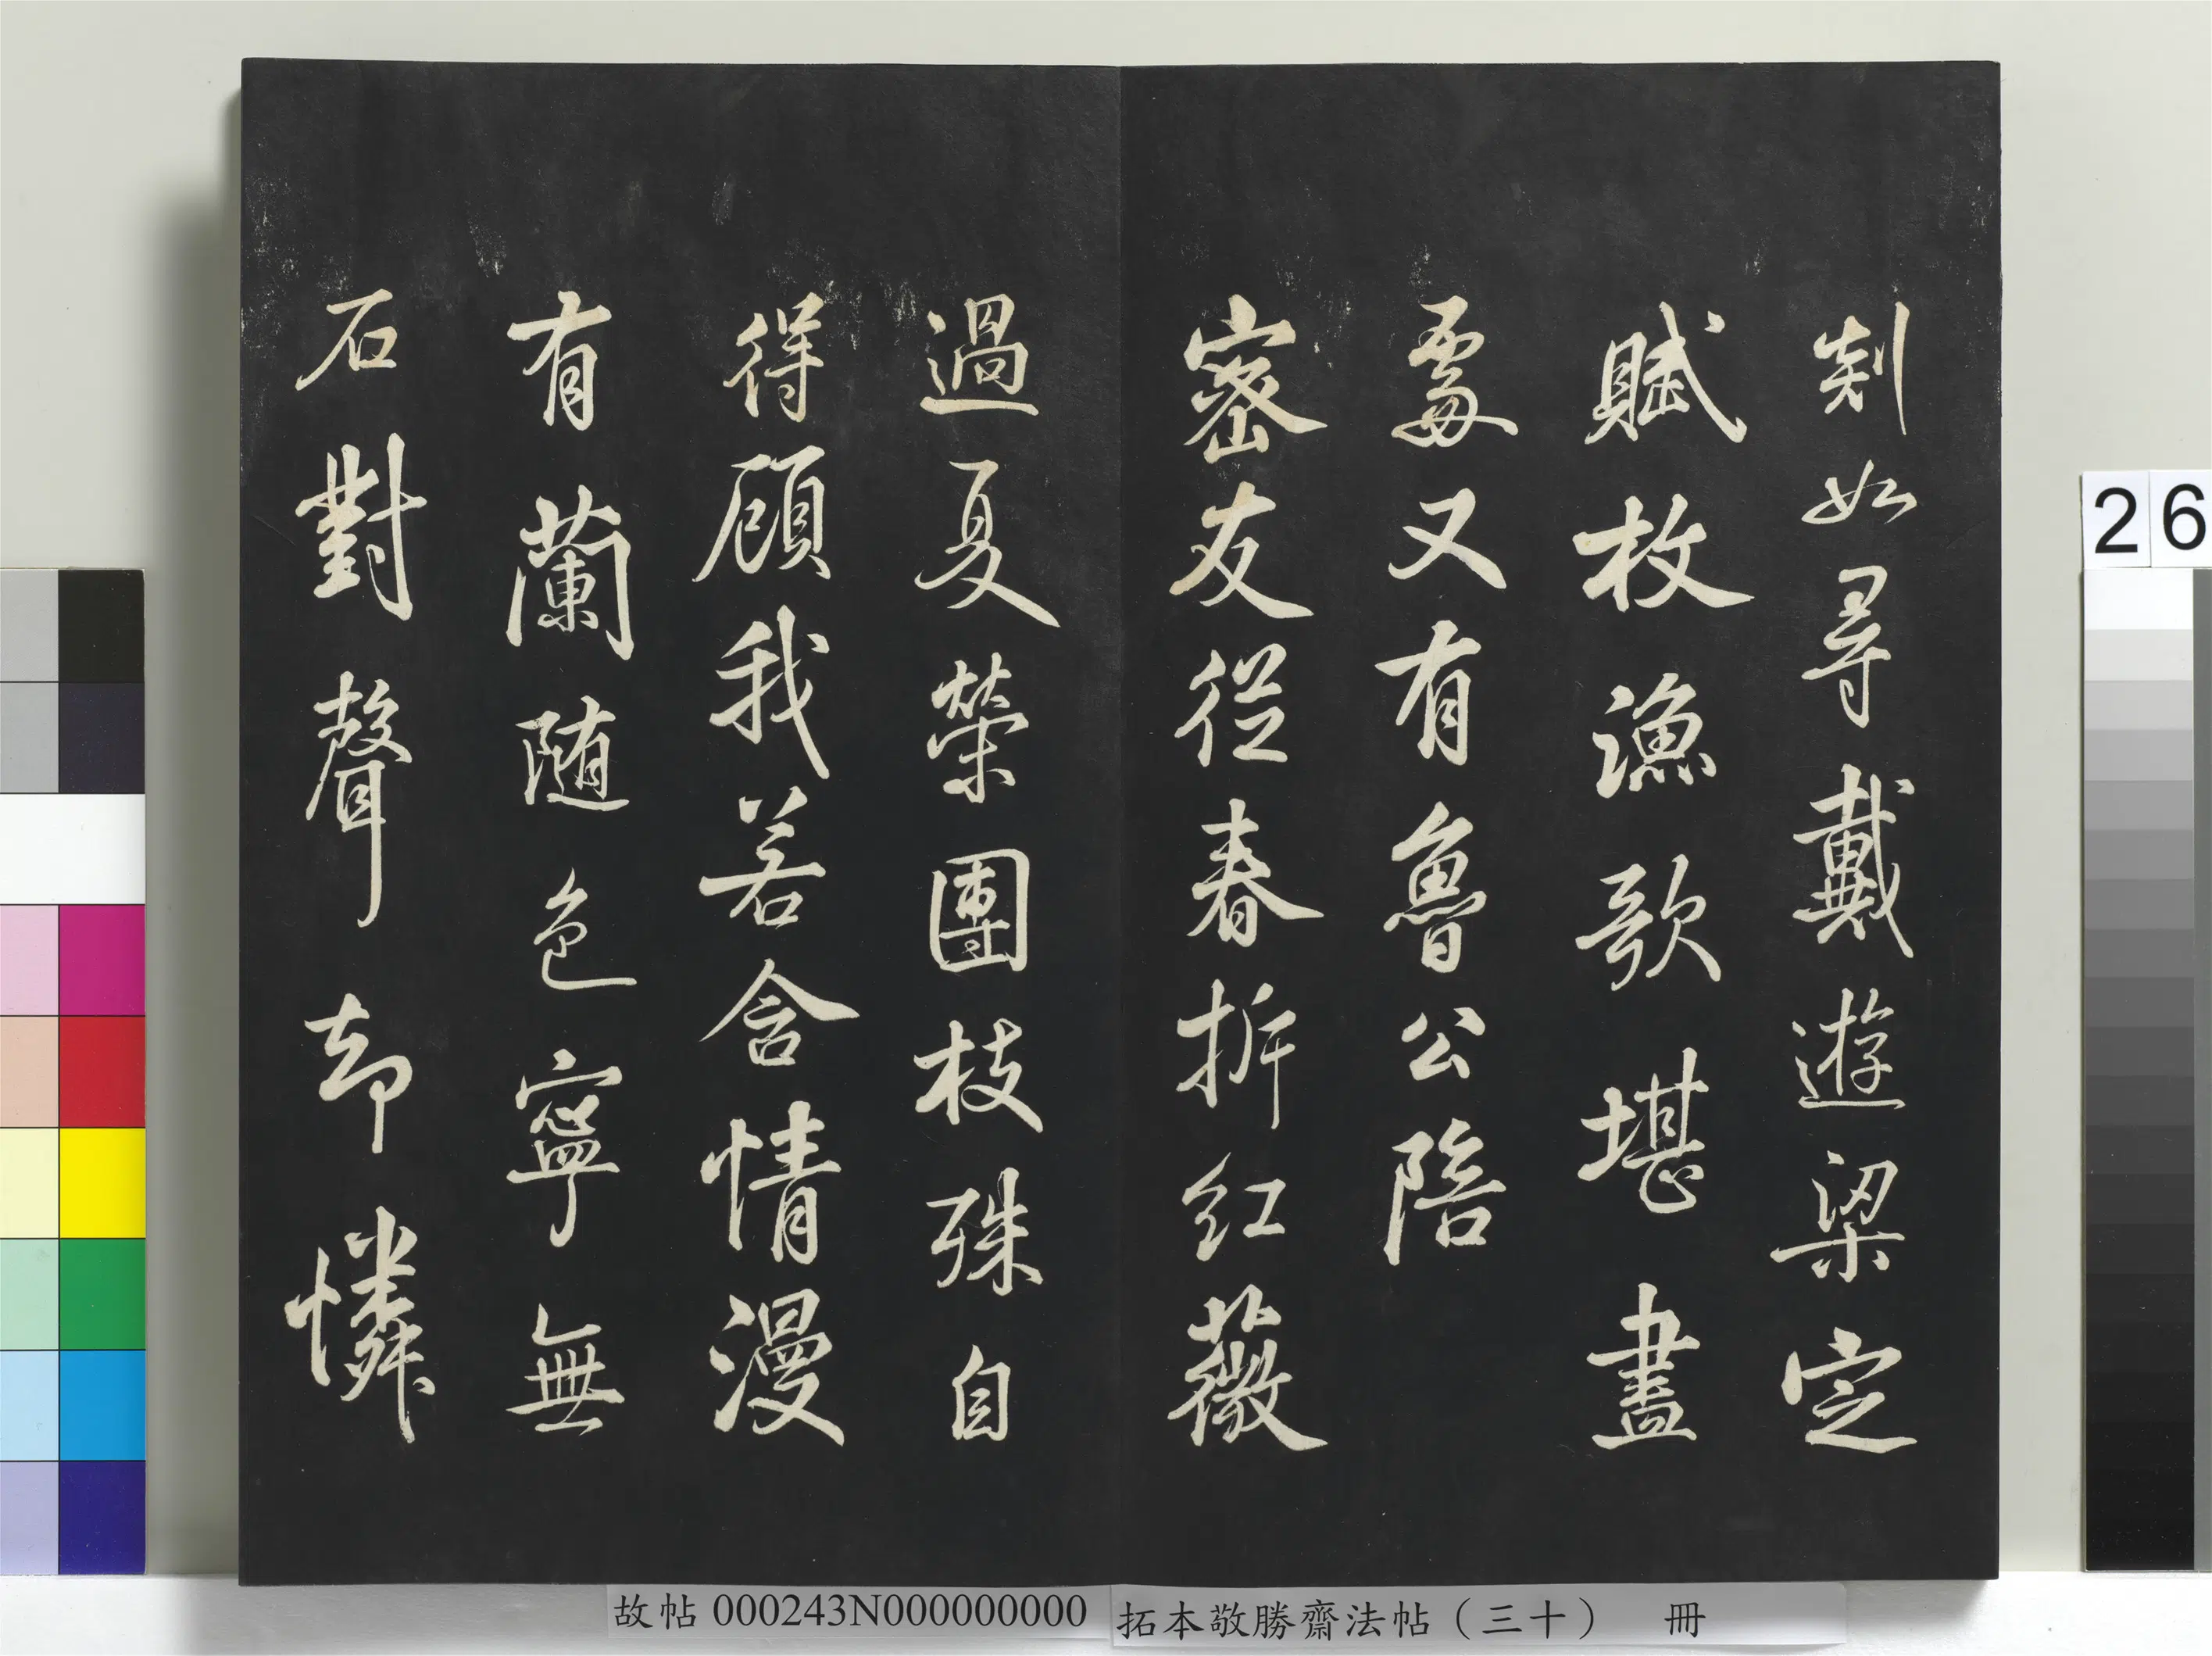 剡如尋戴遊梁定
賦枚漁歌堪畫
處又有魯公陪
密友從春拆紅薇
過夏榮團枝殊自
得顧我若含情漫
有蘭随色寧無
石對聲却憐
26
故帖 000243N000000000
拓本敬勝齋法帖（三十） 冊